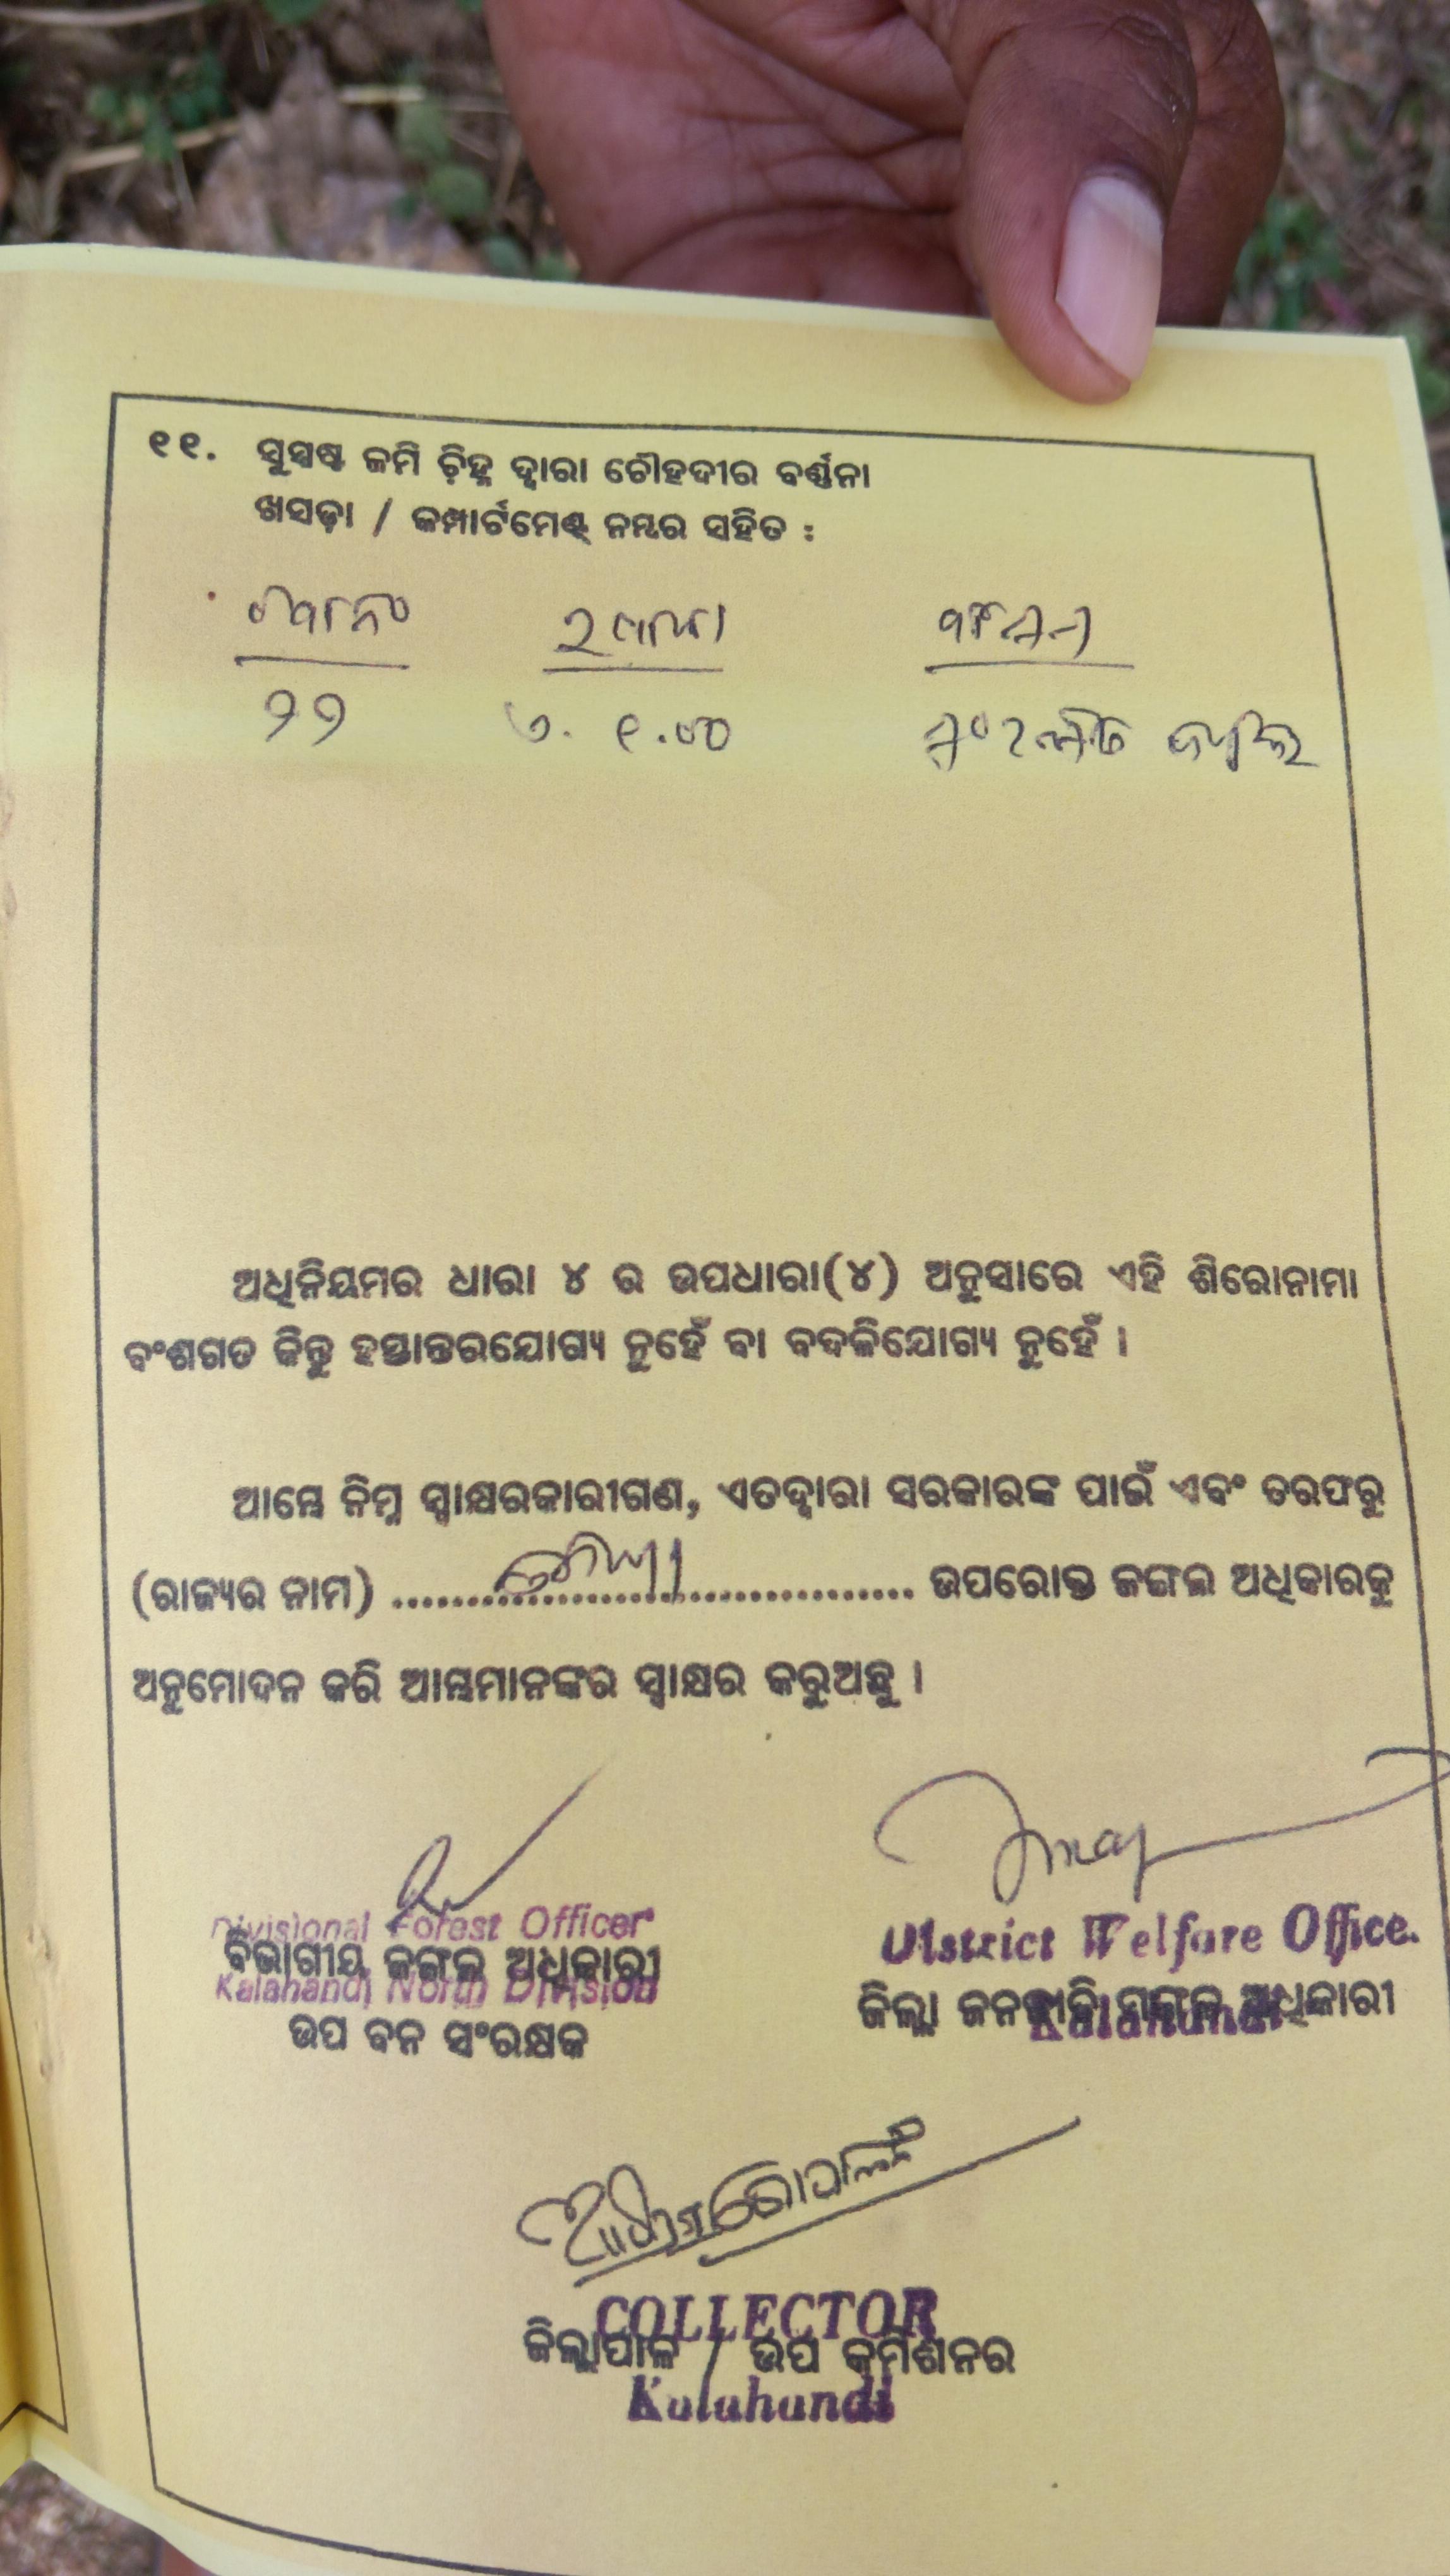 ୧୧. ସୁସ୍ପଷ୍ଟ ଜମି ଚ଼ିହ୍ନ ଦ୍ଵାରା ଚୌହଦୀର ବର୍ଣ୍ଣନା
ଖସଡ଼ା / କମ୍ପାର୍ଟମେଣ୍ଟ୍ ନମ୍ଵର ସହିତ :
୨୨ ୧.୦୦
ଅଧିନିୟମର ଧାରା ୪ ର ଉପଧାରା(୪) ଅନୁସାରେ ଏହି ଶିରୋନାମା
ବଂଶଗତ କିନ୍ତୁ ହସ୍ତାନ୍ତରଯୋଗ୍ୟ ନୁହେଁ ବା ବଦଳିଯୋଗ୍ୟ ନୁହେଁ ।
ଆମ୍ଭେ ନିମ୍ନ ସ୍ଵାକ୍ଷରକାରୀଗଣ, ଏତଦ୍ଵାରା ସରକାରଙ୍କ ପାଇଁ ଏବଂ ତରଫରୁ
(ରାଜ୍ୟର ନାମ) ........................................ ଉପରୋକ୍ତ ଜଙ୍ଗଲ ଅଧିକାରକୁ
ଅନୁମୋଦନ କରି ଆମ୍ଭମାନଙ୍କର ସ୍ଵାକ୍ଷର କରୁଅଛୁ ।
Divisional Forest Officer District Welfare Office.
ବିଭାଗୀୟ ଜଙ୍ଗଲ ଅଧିକାରୀ ଜିଲ୍ଲା ଜନଜାତି ମଙ୍ଗଳ ଅଧିକାରୀ
Kalahandi North Division Kalahandi
ଉପ ବନ ସଂରକ୍ଷକ
COLLECTOR
ଜିଲ୍ଲାପାଳ / ଉପ କମିଶନର
Kalahandi